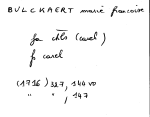 BULCKAERT marie francoise
fa chls (carel)
fs carel
(1736) 327, 140 vo
" " , 147